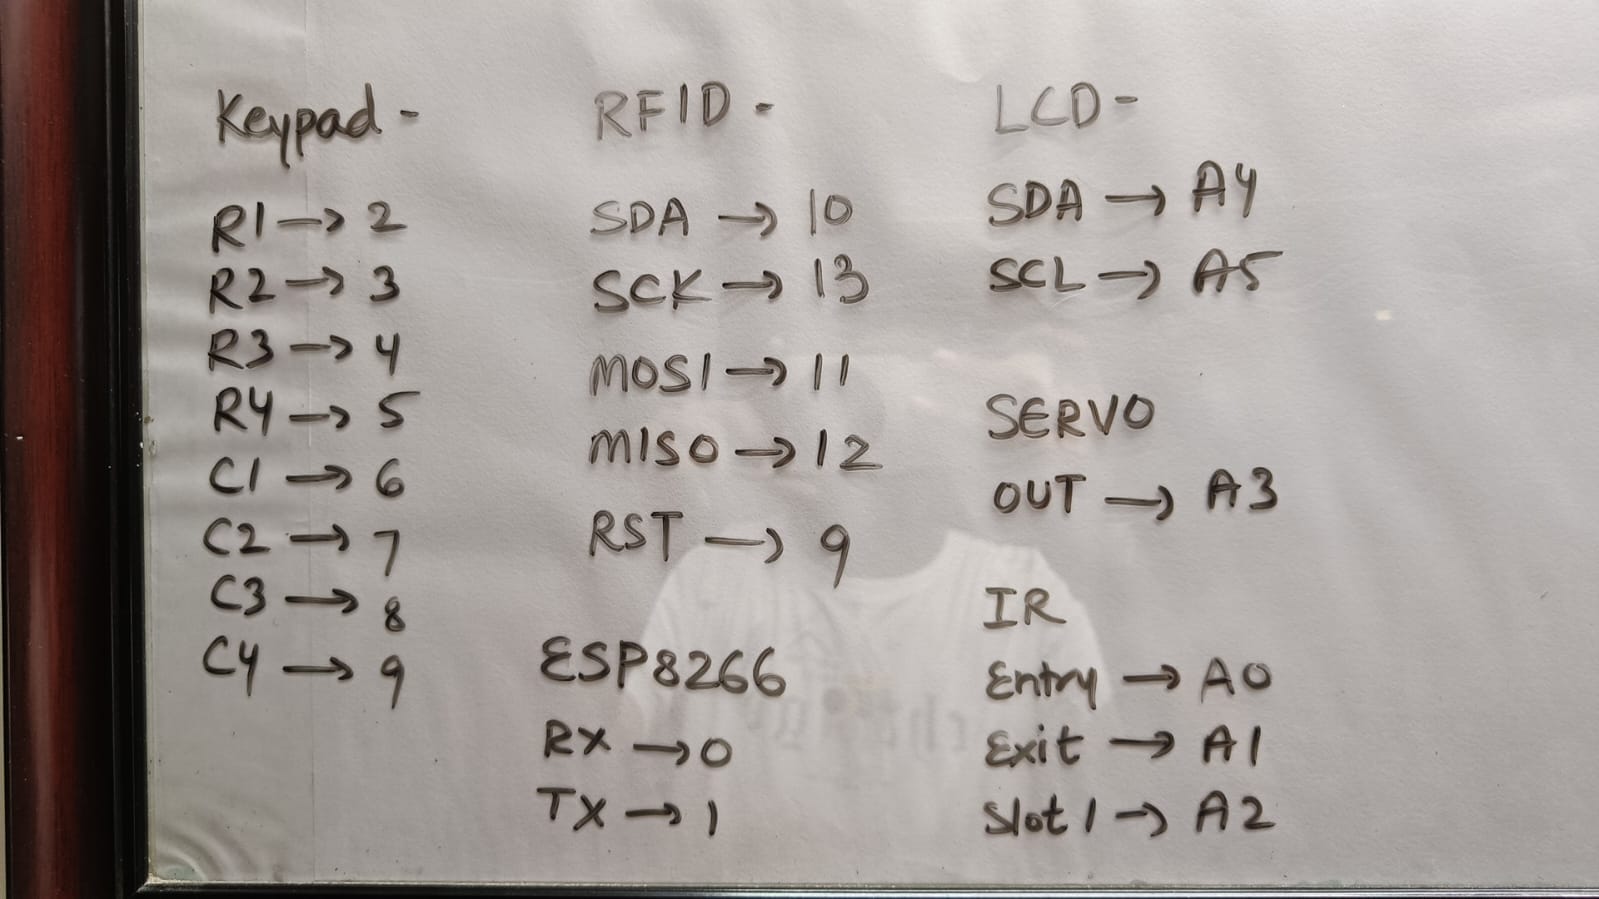 Keypad -
R1 → 2
R2 → 3
R3 → 4
R4 → 5
C1 → 6
C2 → 7
C3 → 8
C4 → 9
RFID -
SDA → 10
SCK → 13
MOSI → 11
MISO → 12
RST → 9
ESP8266
RX → 0
TX → 1
LCD -
SDA → A4
SCL → A5
SERVO
OUT → A3
IR
Entry → A0
Exit → A1
Slot 1 → A2